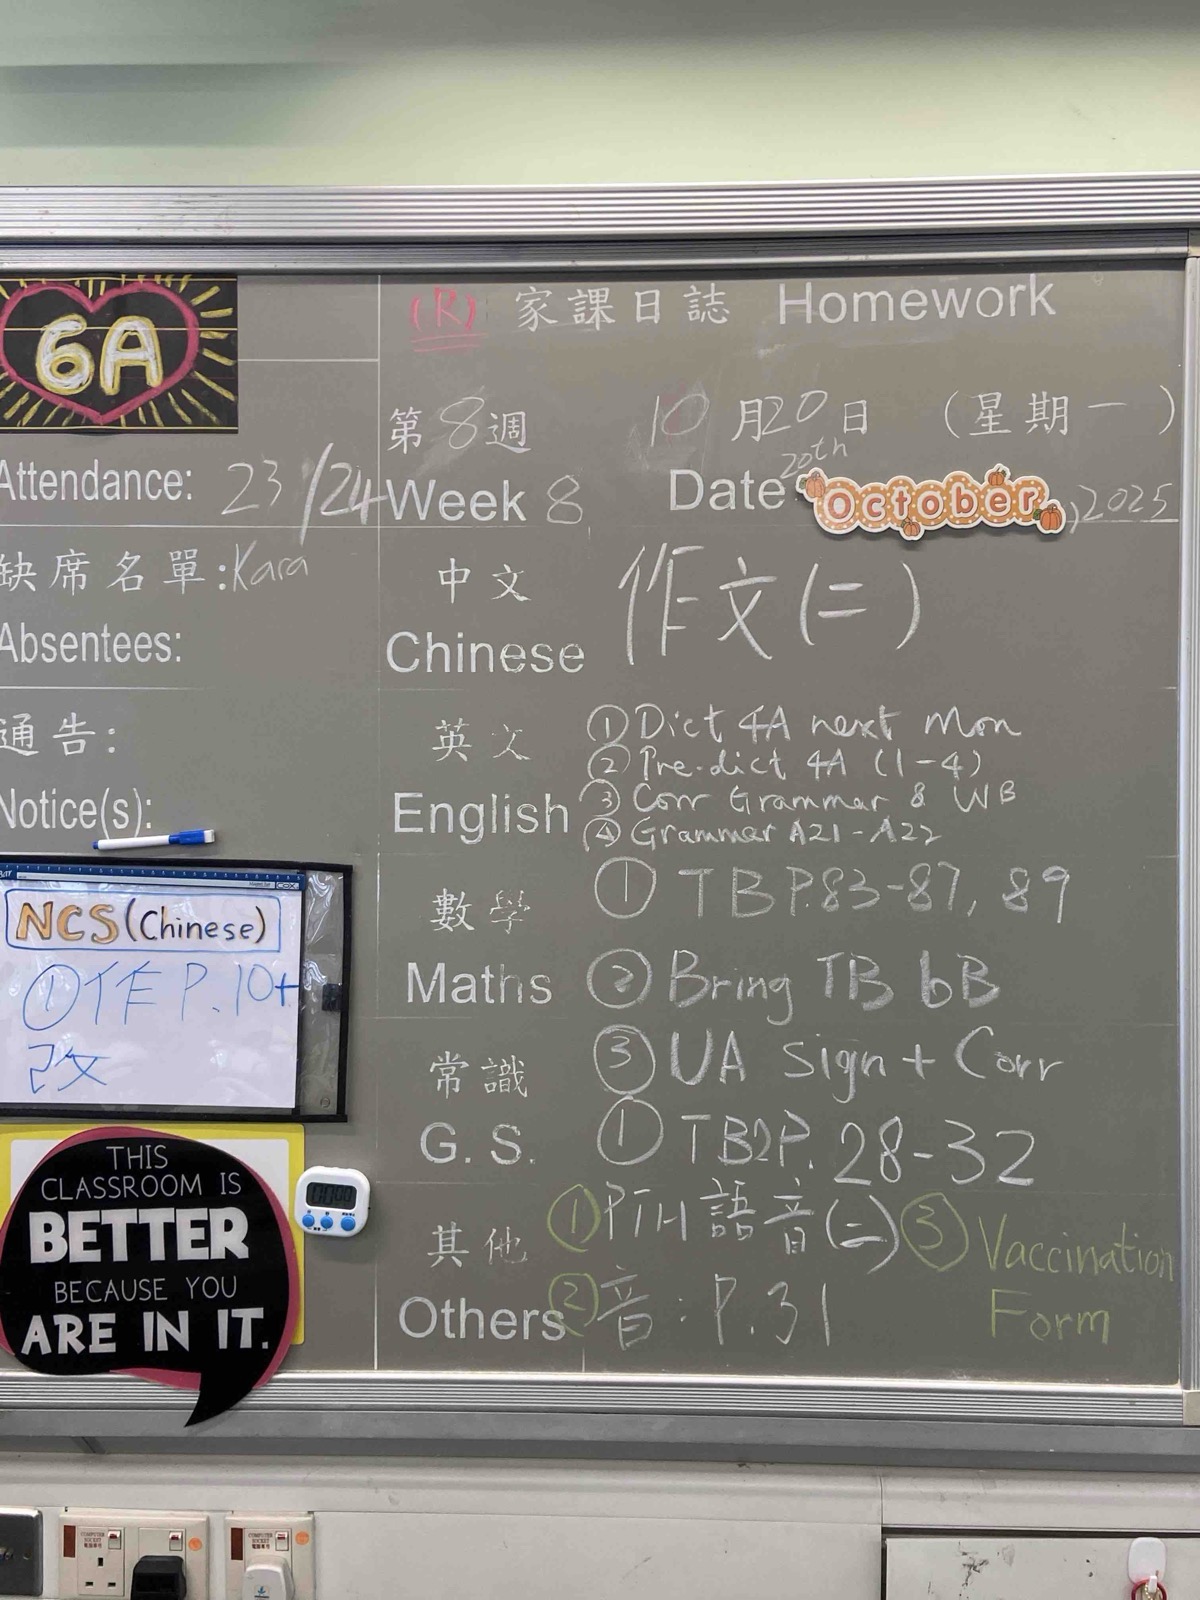 6A
Attendance: 23/24
缺席名單: Kara
Absentees:
通告:
Notice(s):
NCS (Chinese)
① 作 P.10+
改
THIS
CLASSROOM IS
BETTER
BECAUSE YOU
ARE IN IT.
(R) 家課日誌 Homework
第8週 10月20日 (星期一)
Week 8 Date 20th October, 2025
中文
Chinese
作文(二)
英文
English
① Dict 4A next Mon
② Pre-dict 4A (1-4)
③ Corr Grammar & WB
④ Grammar A21-A22
數學
Maths
① TB P.83-87, 89
② Bring TB 6B
③ UA sign + Corr
常識
G. S.
① TB2 P. 28-32
其他
Others
① PTH 語音(二)
② 音: P.31
③ Vaccination
Form
COMPUTER
SOCKET
電腦專用
COMPUTER
SOCKET
電腦專用